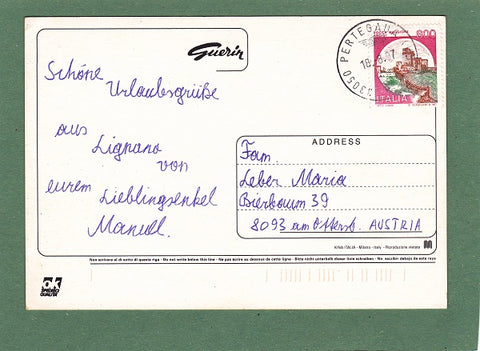 Guerin
Schöne
Urlaubsgrüße
aus
Lignano
von
eurem Lieblingsenkel
Manuel.
33050 PERTEGADA
18.8.87
600
ITALIA
ADDRESS
Fam.
Leber Maria
Bierbaum 39
8093 am Ottersb. AUSTRIA
KINA ITALIA - Milano - Italy - Riproduzione vietata M
Non scrivere al di sotto di questa riga - Do not write below this line - Ne pas écrire au dessous de cette ligne - Bitte nicht unterhalb dieser linie schreiben - No escribir debajo de esta raya
OK